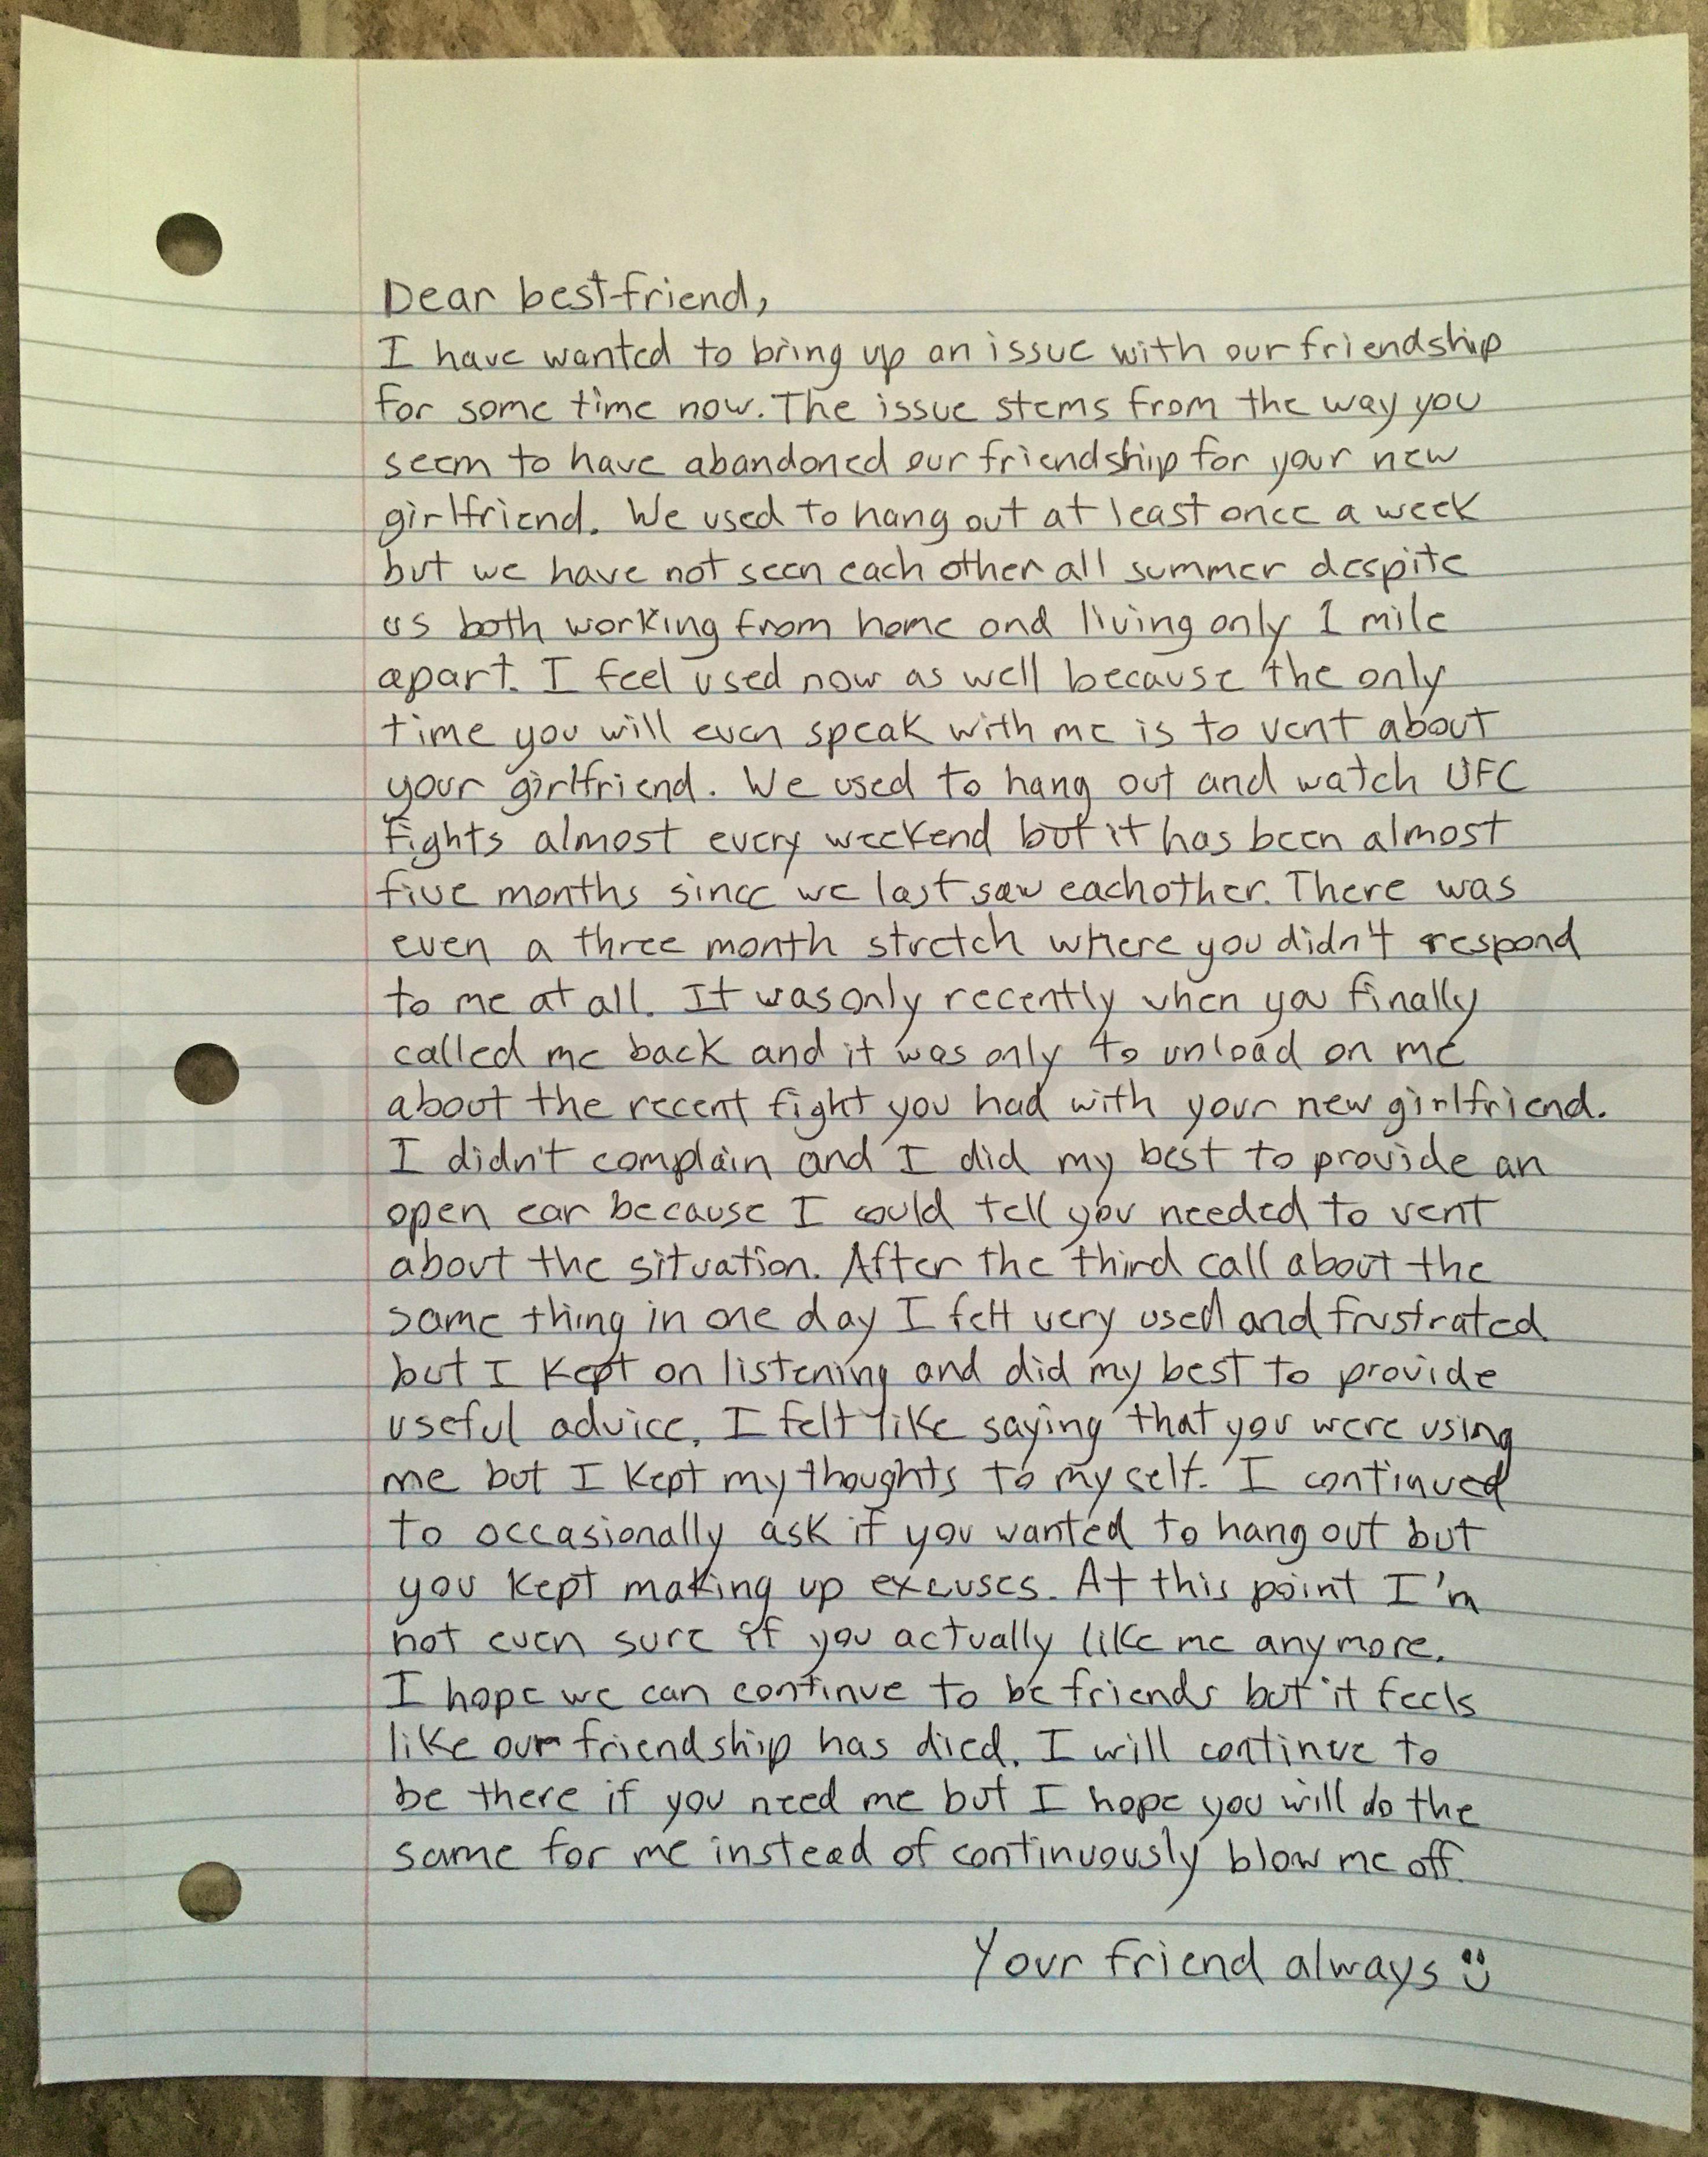 Dear best friend,
I have wanted to bring up an issue with our friendship
for some time now. The issue stems from the way you
seem to have abandoned our friendship for your new
girlfriend. We used to hang out at least once a week
but we have not seen each other all summer despite
us both working from home and living only 1 mile
apart. I feel used now as well because the only
time you will even speak with me is to vent about
your girlfriend. We used to hang out and watch UFC
fights almost every weekend but it has been almost
five months since we last saw eachother. There was
even a three month stretch where you didn't respond
to me at all. It was only recently when you finally
called me back and it was only to unload on me
about the recent fight you had with your new girlfriend.
I didn't complain and I did my best to provide an
open ear because I could tell you needed to vent
about the situation. After the third call about the
same thing in one day I felt very used and frustrated
but I kept on listening and did my best to provide
useful advice. I felt like saying that you were using
me but I kept my thoughts to myself. I continued
to occasionally ask if you wanted to hang out but
you kept making up excuses. At this point I'm
not even sure if you actually like me anymore.
I hope we can continue to be friends but it feels
like our friendship has died. I will continue to
be there if you need me but I hope you will do the
same for me instead of continuously blow me off.
Your friend always